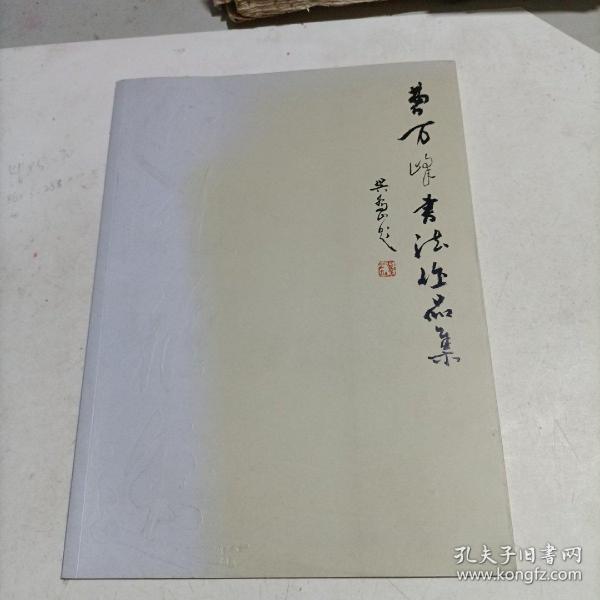 曹万峰书法作品集
吴为山题
孔夫子旧书网
www.kongfz.com